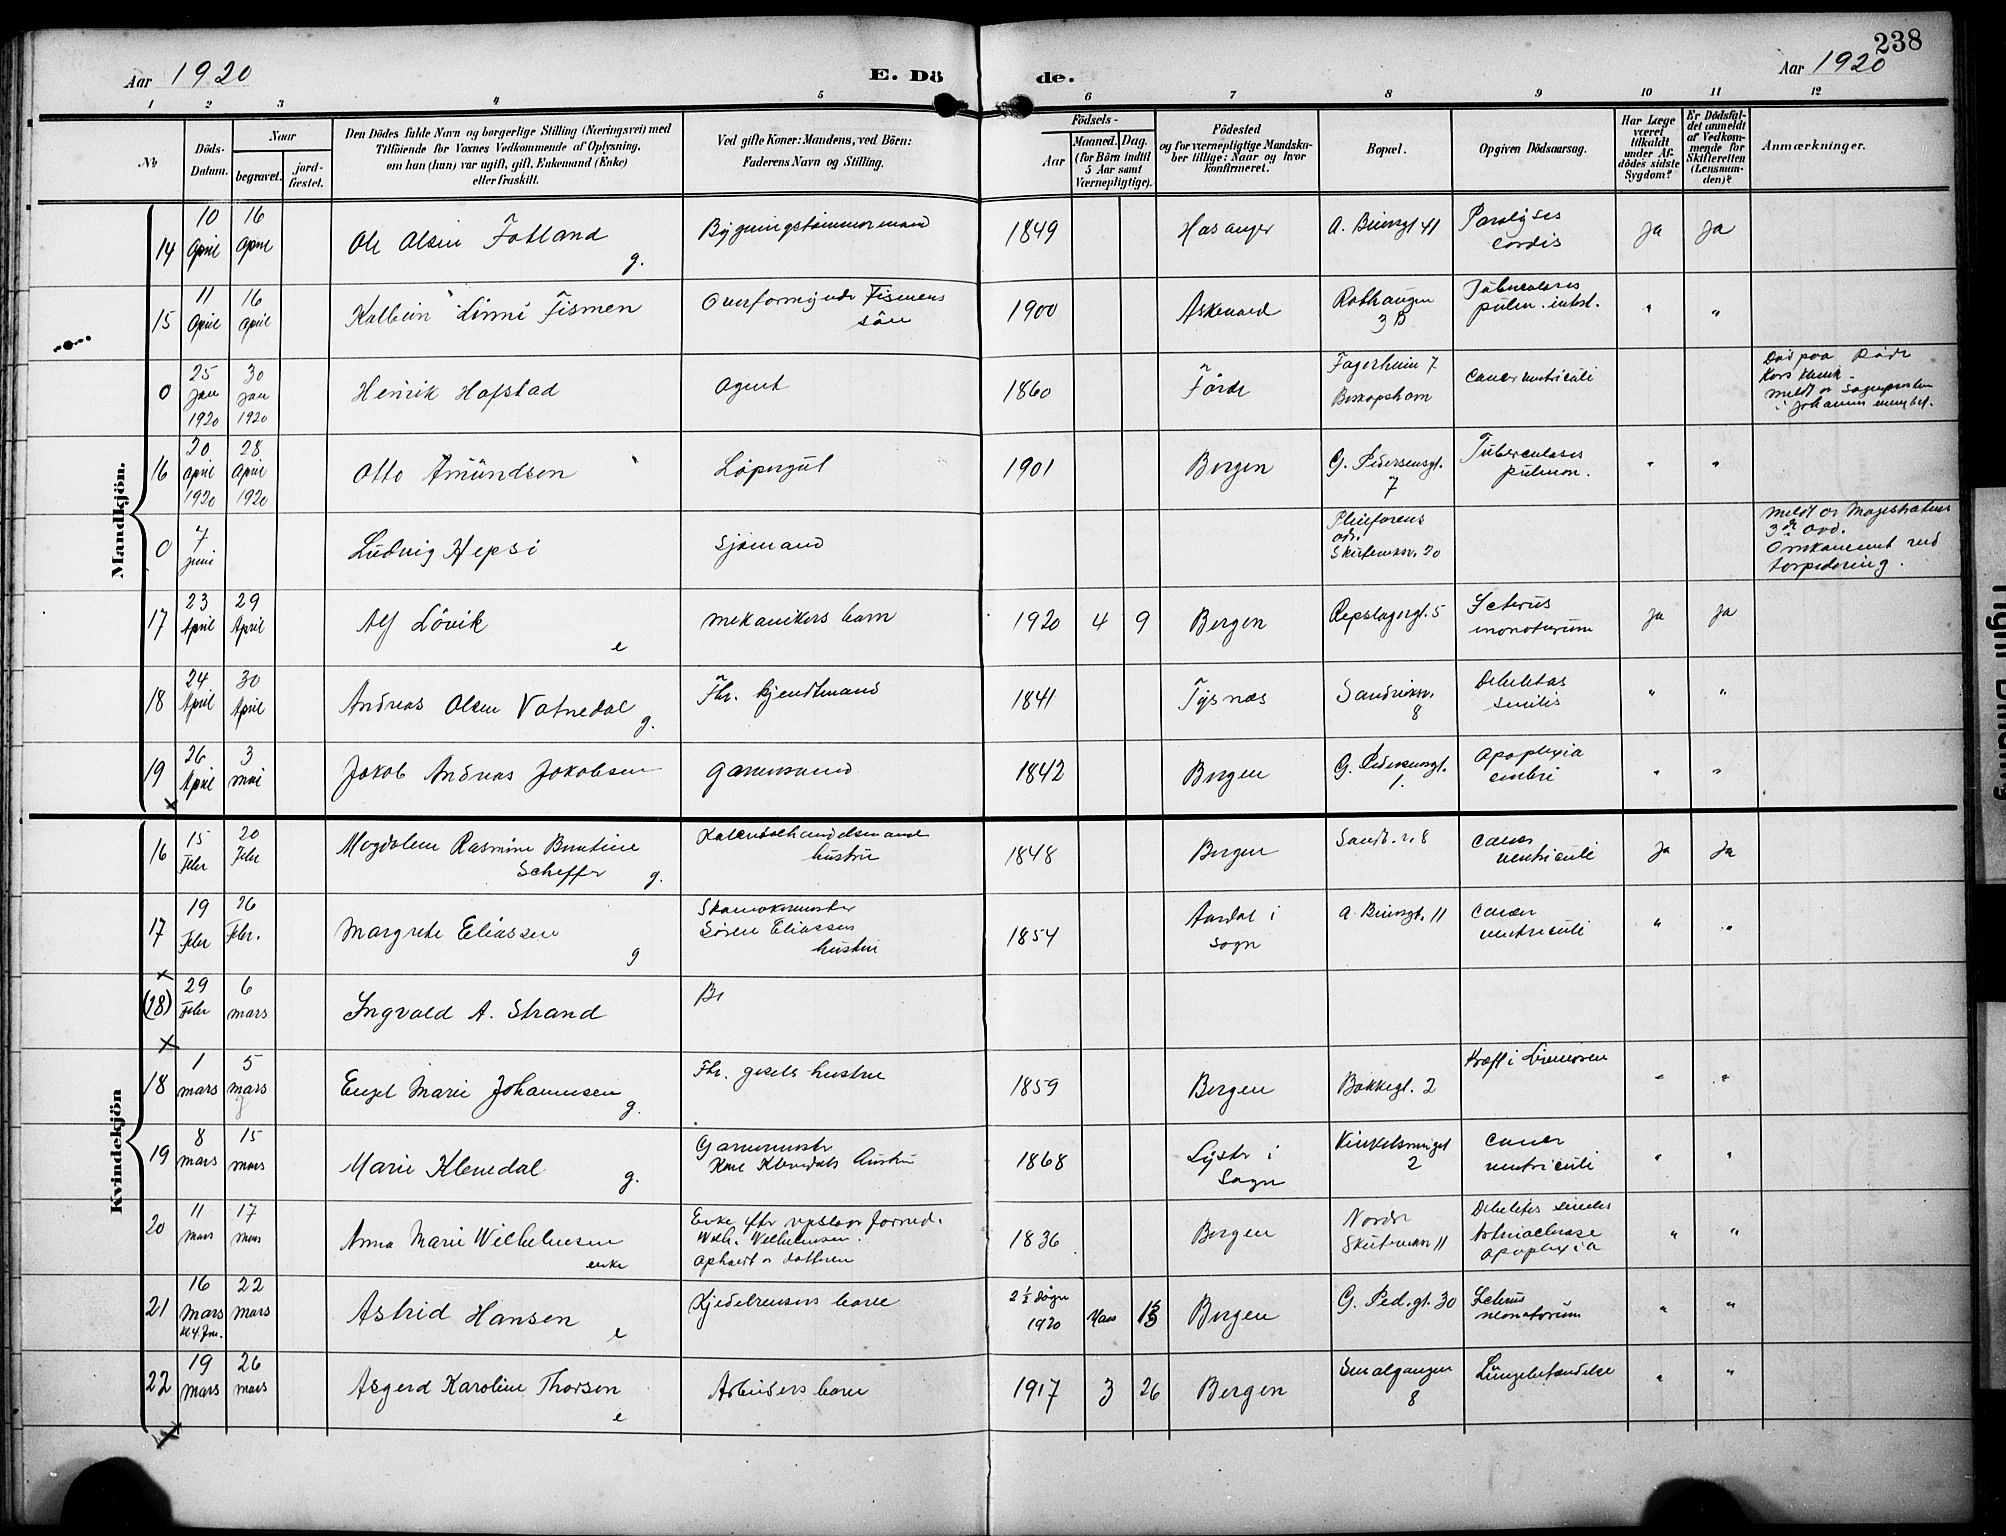 238
Aar 1920
E. Dö de.
Aar 1920
1 2 3 4 5 6 7 8 9 10 11 12
No
Döds-
Datum.
Naar
begravet.
jord-
fæstet.
Den Dödes fulde Navn og borgerlige Stilling (Næringsvei) med
Tilföiende for Voxnes Vedkommende af Oplysning,
om han (hun) var ugift, gift, Enkemand (Enke)
eller fraskilt.
Ved gifte Koner: Mandens, ved Börn:
Faderens Navn og Stilling.
Födsels-
Aar
Maaned. Dag.
(for Börn indtil
5 Aar samt
Værnepligtige).
Födested
og for værnepligtige Mandska-
ber tillige: Naar og hvor
konfirmeret.
Bopæl.
Opgiven Dödsaarsag.
Har Læge
været
tilkaldt
under Af-
dödes sidste
Sygdom?
Er Dödsfal-
det anmeldt
af Vedkom-
mende for
Skifteretten
(Lensman-
den)?
Anmærkninger.
Mandkjön.
14 10 April 16 April Ole Olsen Fotland g. Bygningstømmermand 1849 A. Brunsgt 41 Paralyses cordis Ja Ja
15 11 April 16 April Linni Fismen Overformynder Fismens sön 1900 Askevold Rothaugen 3 B Tuberculoses pulm. intest. " "
0 25 Jan 1920 30 Jan 1920 Henrik Hofstad Agent 1860 Förde Fagerheim 7 Biskopshavn Cancer ventriculi Död paa Röde Kors klinik
16 20 April 1920 28 April 1920 Otto Amundsen Løpergut 1901 Bergen G. Pedersensgt. 7 Tuberculoses pulmon. " "
0 7 Juni Ludvig Hepsi Sjömand 20 Meldt av Magistratens 3 avd. Omkommet ved torpedering.
17 23 April 29 April Alf Lövik e Mekanikers barn 1920 4 9 Bergen Repslagergt. 5 Icterus Ja Ja
18 24 April 30 April Andreas Olsen Vatnedal g. Fhr. kjendtmand 1841 Tysnæs Sandviksv. 8 Debilitas senilis " "
19 26 April 3 mai Jakob Andreas Jakobsen 1842 Bergen G. Pedersensgt. 1. Apoplexia cerebri " "
Kvindekjön
16 15 Febr 20 Febr Magdalene Rasmine Bentine Scheffer g. hustru 1848 Bergen Sandv. v. 8 Cancer ventriculi Ja Ja
17 19 Febr 26 Febr. Margrete Eliassen g Sören Eliassen hustru 1854 Aardal i Sogn A. Bruunsgt. 11 Cancer ventriculi " "
(18) 29 Febr 6 mars Ingvald A. Strand
18 1 mars 5 mars Engel Marie Johannesen g. Fhr. gsels hustru 1859 Bergen Bakkegt. 2 Kræft i " "
19 8 mars 15 mars Marie Klevedal g. Klevedals hustru 1868 Lyster i Sogn Vinkelsmuget 2 Cancer ventriculi " "
20 11 mars 17 mars Anna Marie Wilhelmsen enke Enke efter Wilh. Wilhelmsen. 1836 Bergen Nordre Skuteviksv 11 Debilitas senilis Apoplexia " "
21 16 Mars 22 mars Astrid Hansen e Kjedelrensers barn 2 1/2 døgn 1920 Mars Bergen G. Ped. gt. 30 Icterus neonatorum " "
22 19 mars 26 mars Asgerd Karoline Thorsen e Arbeiders barn 1917 3 26 Bergen Smalgangen 8 Lungebetændelse " "